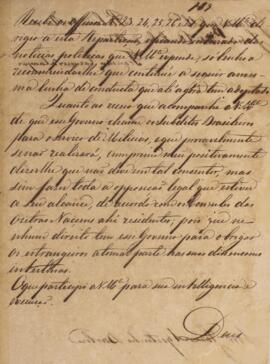 Recebi os officios Nos 23, 24, 25, 26, 27 que V. Mce di-
rigio a esta Repartição, e ficando inteirado das
noticias politicas que V. Mce expende, só tenho a
recommendar lhe que continue a seguir a mes-
ma linha de conducta que até agora tem adoptado.
Quanto ao receio que acompanha a V. Mce
de que esse Governo chame os subditos Brasileiros
para o serviço de Milicias, o que provavelmente
se não realisará, cumpre-me positivamente
dizer lhe que não deve em tal consentir, mas
sim fazer toda a opposição legal que estiver
a seu alcance, de accordo com os consules das
outras Nacoens ahi residentes, pois que ne-
nhum direito tem esse Governo para obrigar
os estrangeiros a tomar parte nas suas dissensoens
intestinas.
O que participo a V. Mce para sua intelligencia e
execução.
Deus